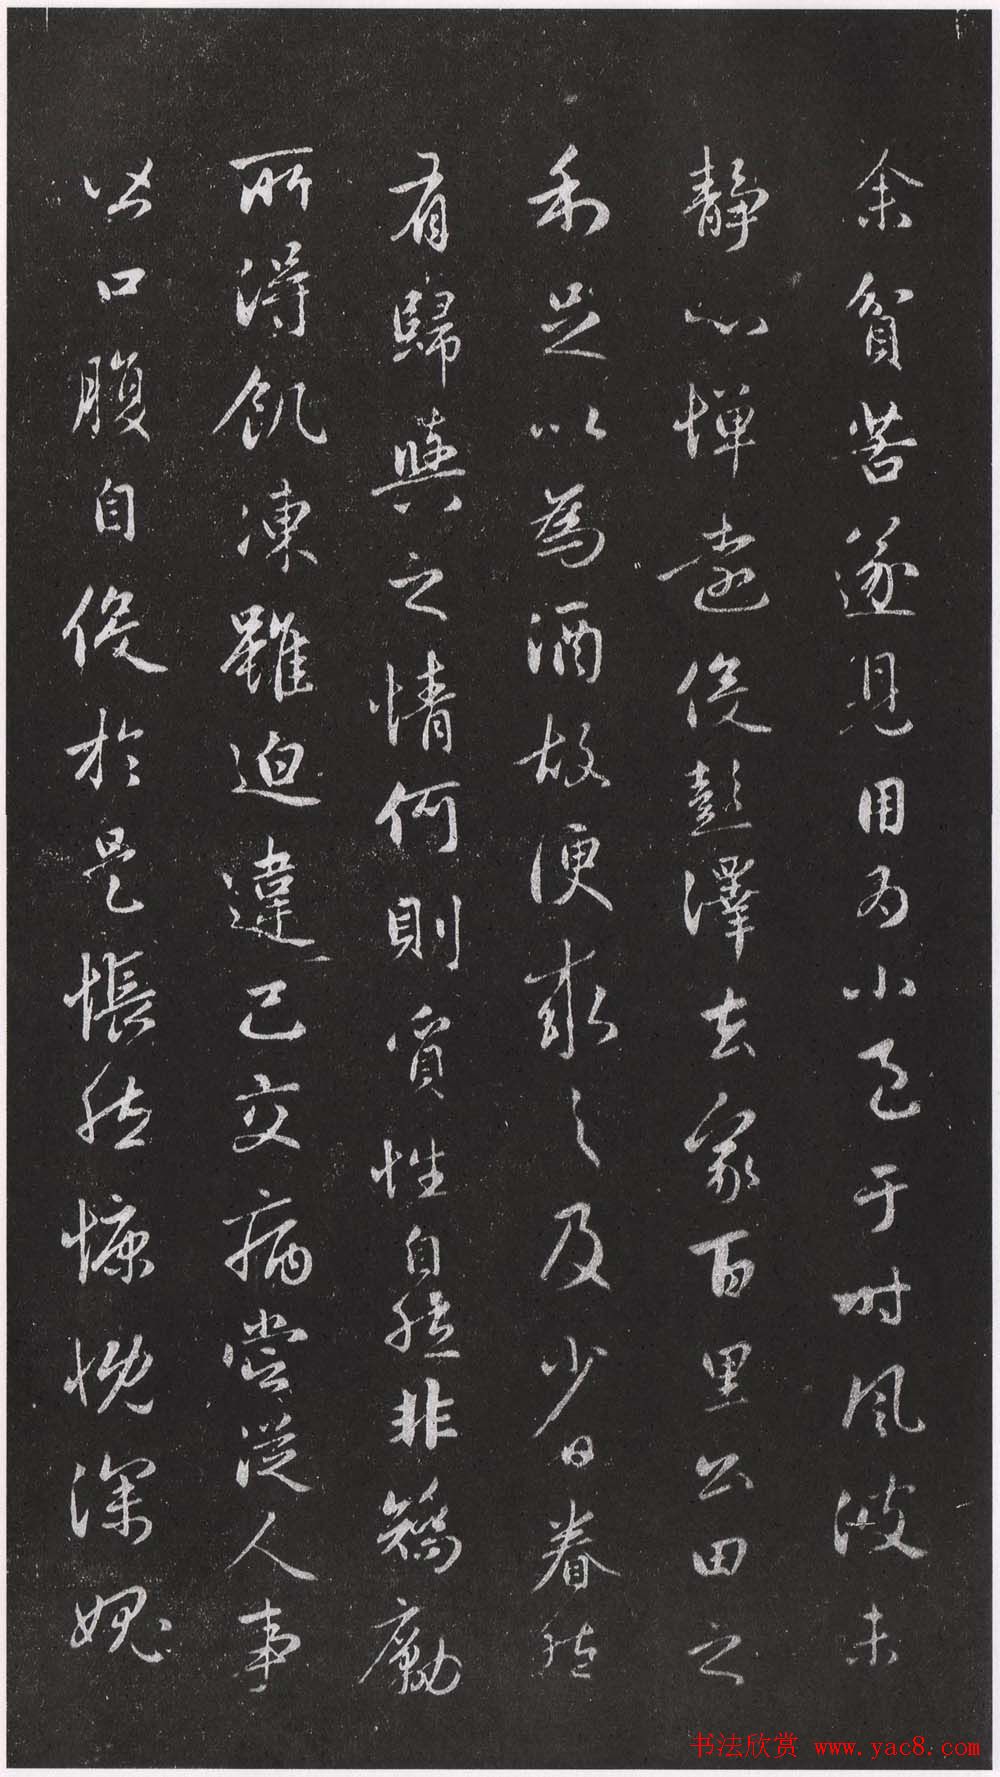 余貧苦遂見用為小邑于時風波未
靜心憚遠役彭澤去家百里公田之
利足以為酒故便求之及少日眷然
有歸與之情何則質性自然非矯勵
所得飢凍雖迫違己交病嘗從人事
皆口腹自役於是悵然慷慨深愧
书法欣赏 www.yac8.com